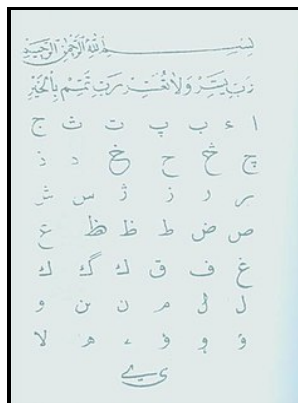 بِسْمِ اللهِ الرَّحْمٰنِ الرَّحِيمِ
رَبِّ يَسِّرْ وَلَا تُعَسِّرْ رَبِّ تَمِّمْ بِالْخَيْرِ
ا ء ب پ ت ث ج
چ ح خ د ذ
ر ز ژ س ش
ص ض ط ظ ع
غ ف ق ك گ ك
ل م ن و
ؤ ء ه لا
ي